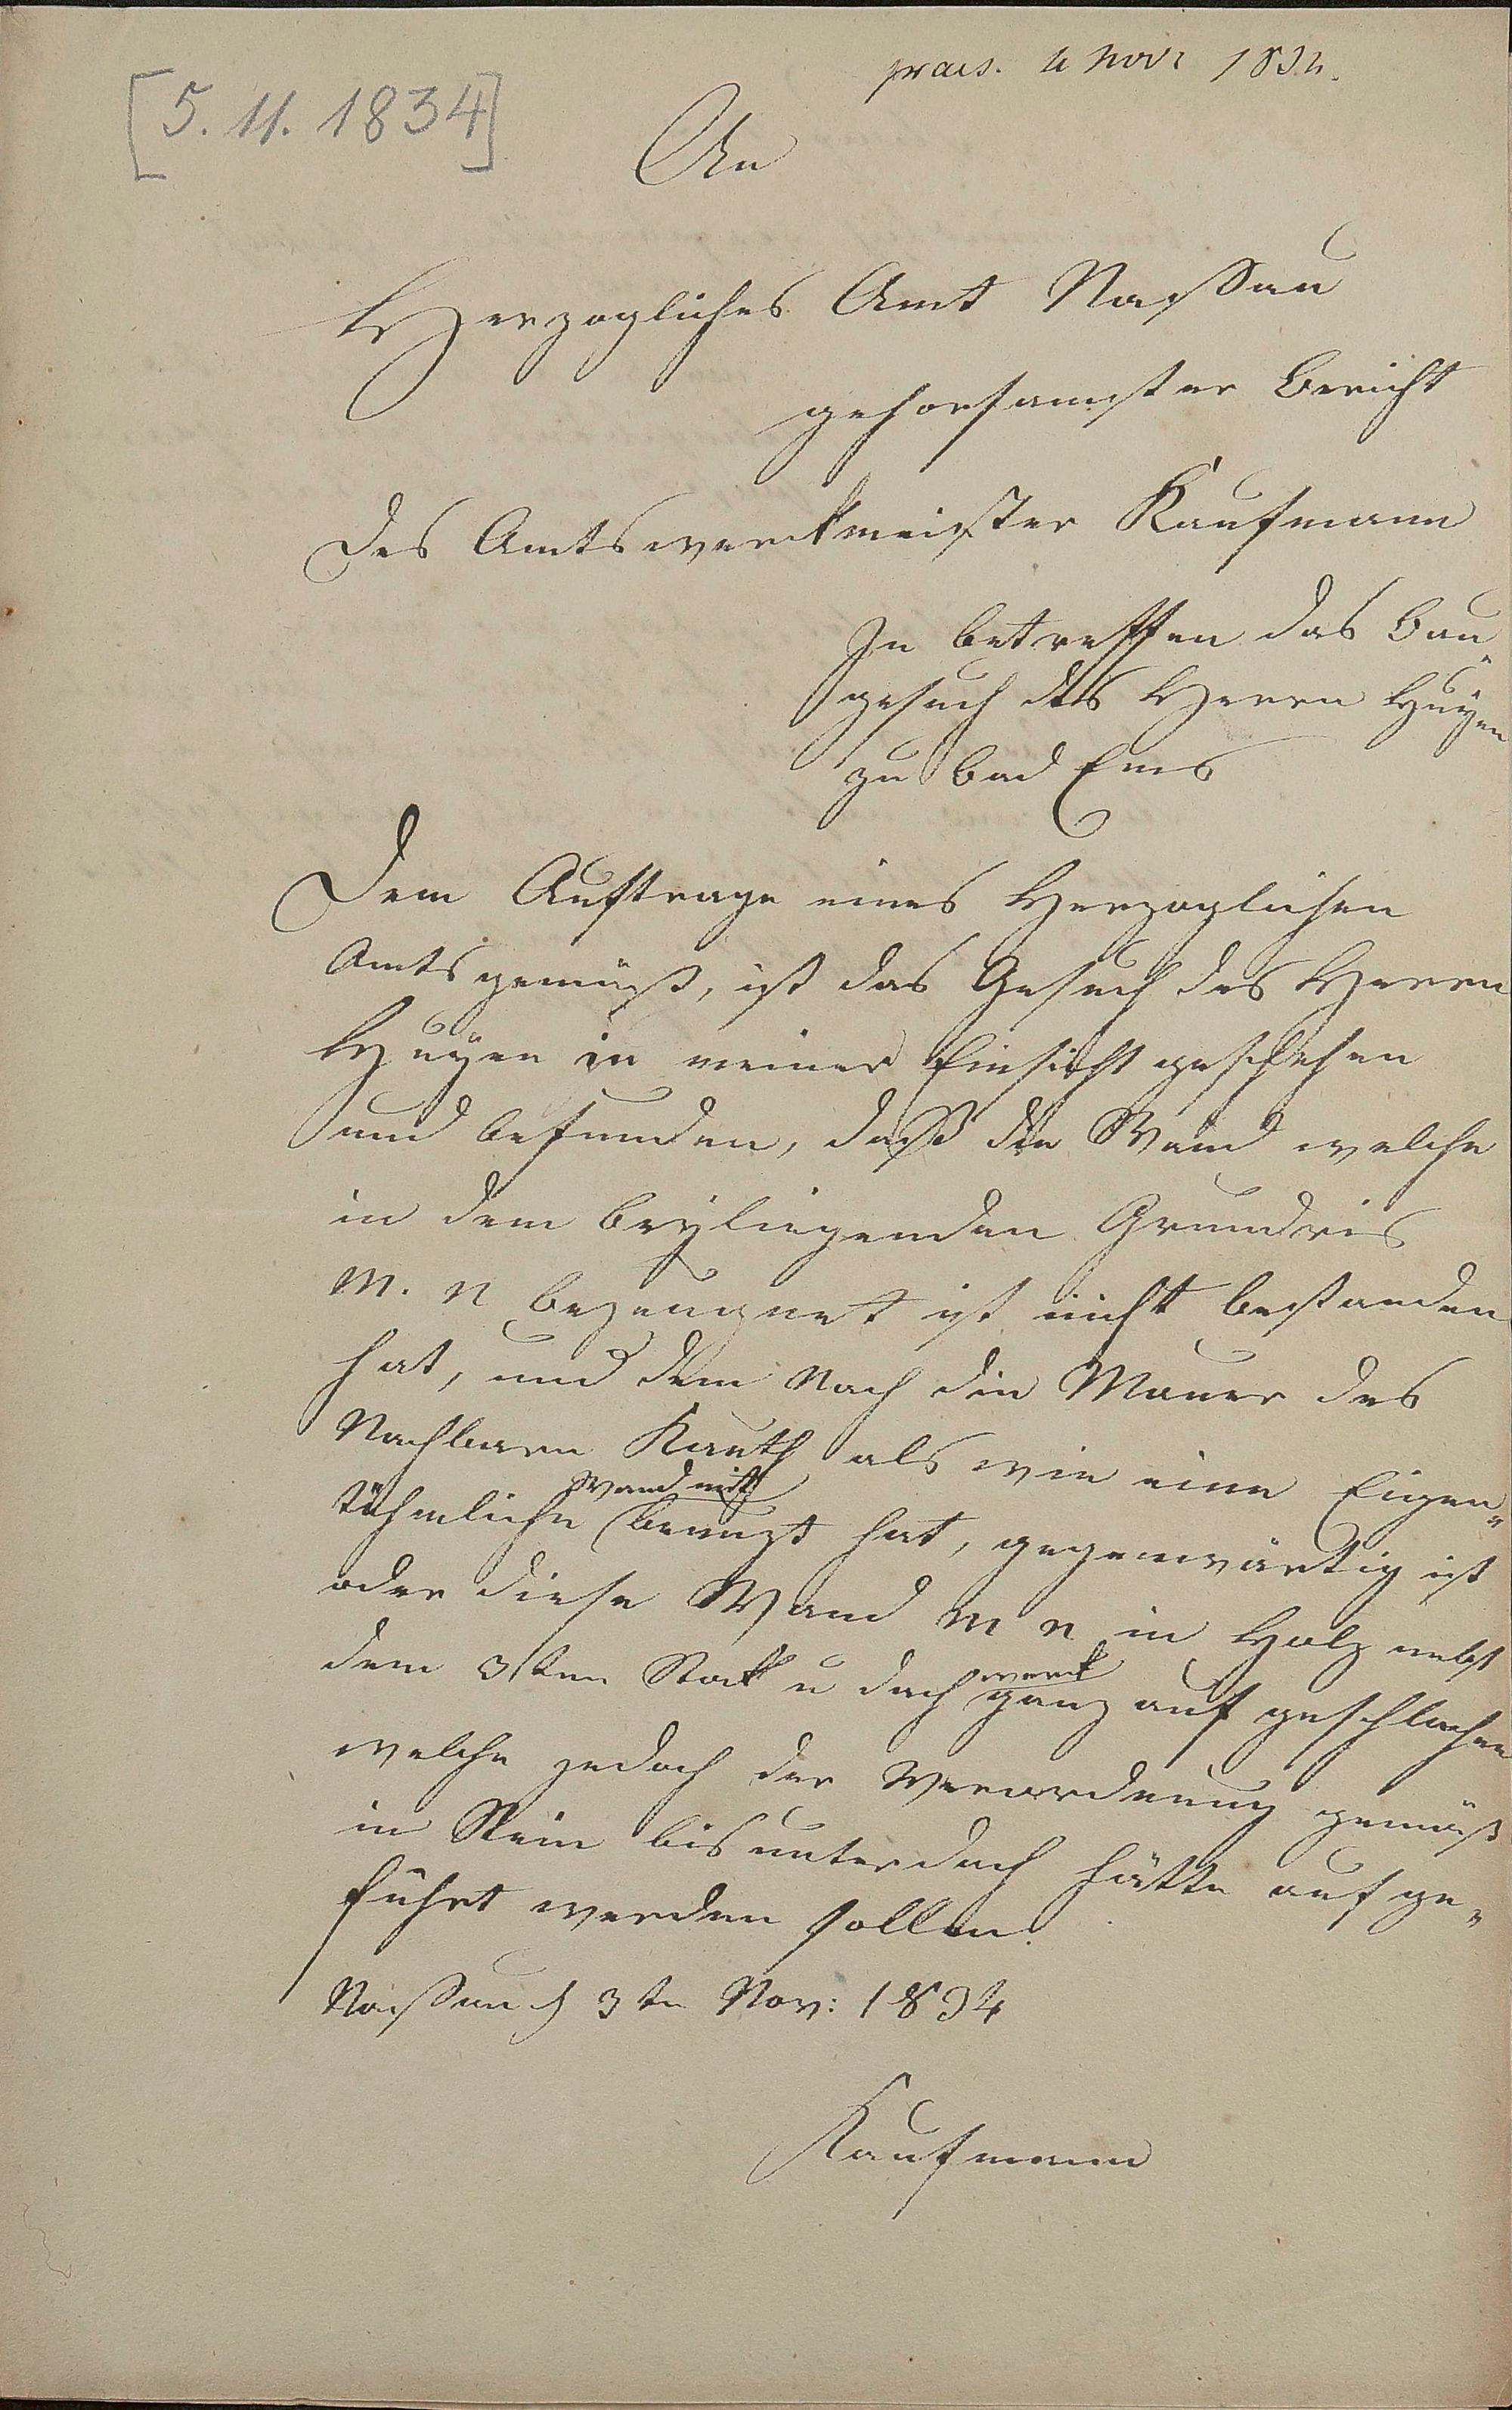 praes. 4 Nov 1834.
[5. 11. 1834]
An
Herzogliches Amt Nassau
gehorsamster Bericht
des Amtswerkmeister Kaufmann
In betreffen das Bau„
gesuch des Herrn Huÿen
zu Bad Ems
Dem Auftrage eines Herzoglichen
Amts gemäß, ist das Gesuch des Herrn
Huÿen in meiner Einsicht geschehen
und befunden, daß die Wand welche
in dem beÿliegenden Grundris
m. n bezeugnet ist nicht bestanden
hat, und dem Nach die Mauer des
Nachbarn Kauth als wie eine Eigen„
Wand mit
tühmliche benuzt hat, gegenwärtig ist
oder diese Wand m n in Holz nebst
werk
dem 3ten Stok u dach ganz auf geschlagen
welche jedoch der Verordnung gemäß
in Stein bis unterdach hätte aufge„
führt werden sollen.
Nassau d 3ten Nov: 1834
Kaufmann